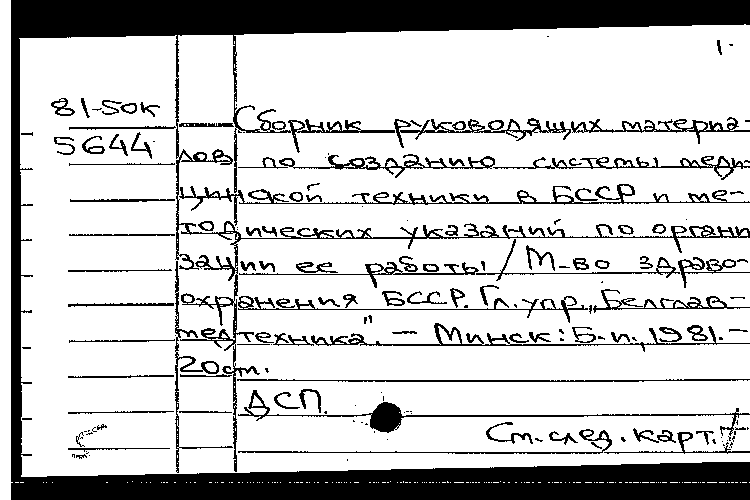 1.
81-50к
5644
Сборник руководящих материа-
лов по созданию системы меди-
цинской техники в БССР и ме-
тодических указаний по органи
зации ее работы / М-во здраво-
охранения БССР. Гл. упр. „Белглав-
медтехника". — Минск: Б. и., 1981. —
20 см.
ДСП.
См. след. карт.